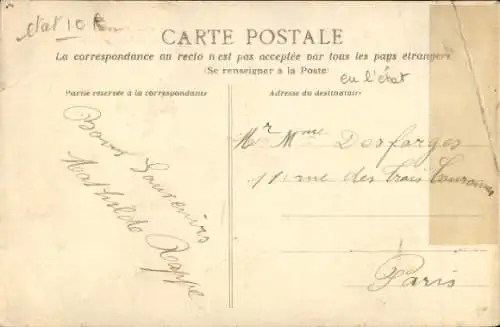 état 10 €
CARTE POSTALE
La correspondance au recto n'est pas acceptée par tous les pays étrangers
(Se renseigner à la Poste)
en l'état
Partie réservée à la correspondance
Bons Souvenirs
Mathilde Kappe
Adresse du destinataire
Mr Mme Desforges
11 rue des Trois Couronnes
Paris